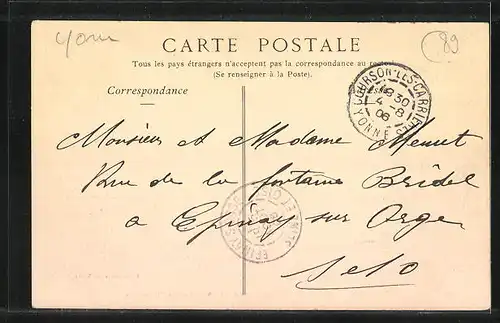 Yonne
89
CARTE POSTALE
Tous les pays étrangers n'acceptent pas la correspondance au recto
(Se renseigner à la Poste).
Correspondance
COURSON-LES-CARRIÈRES
8 30
4 - 8
06
YONNE
Monsieur et Madame Menut
Rue de la fontaine Bridel
a Epinay sur Orge
S et O